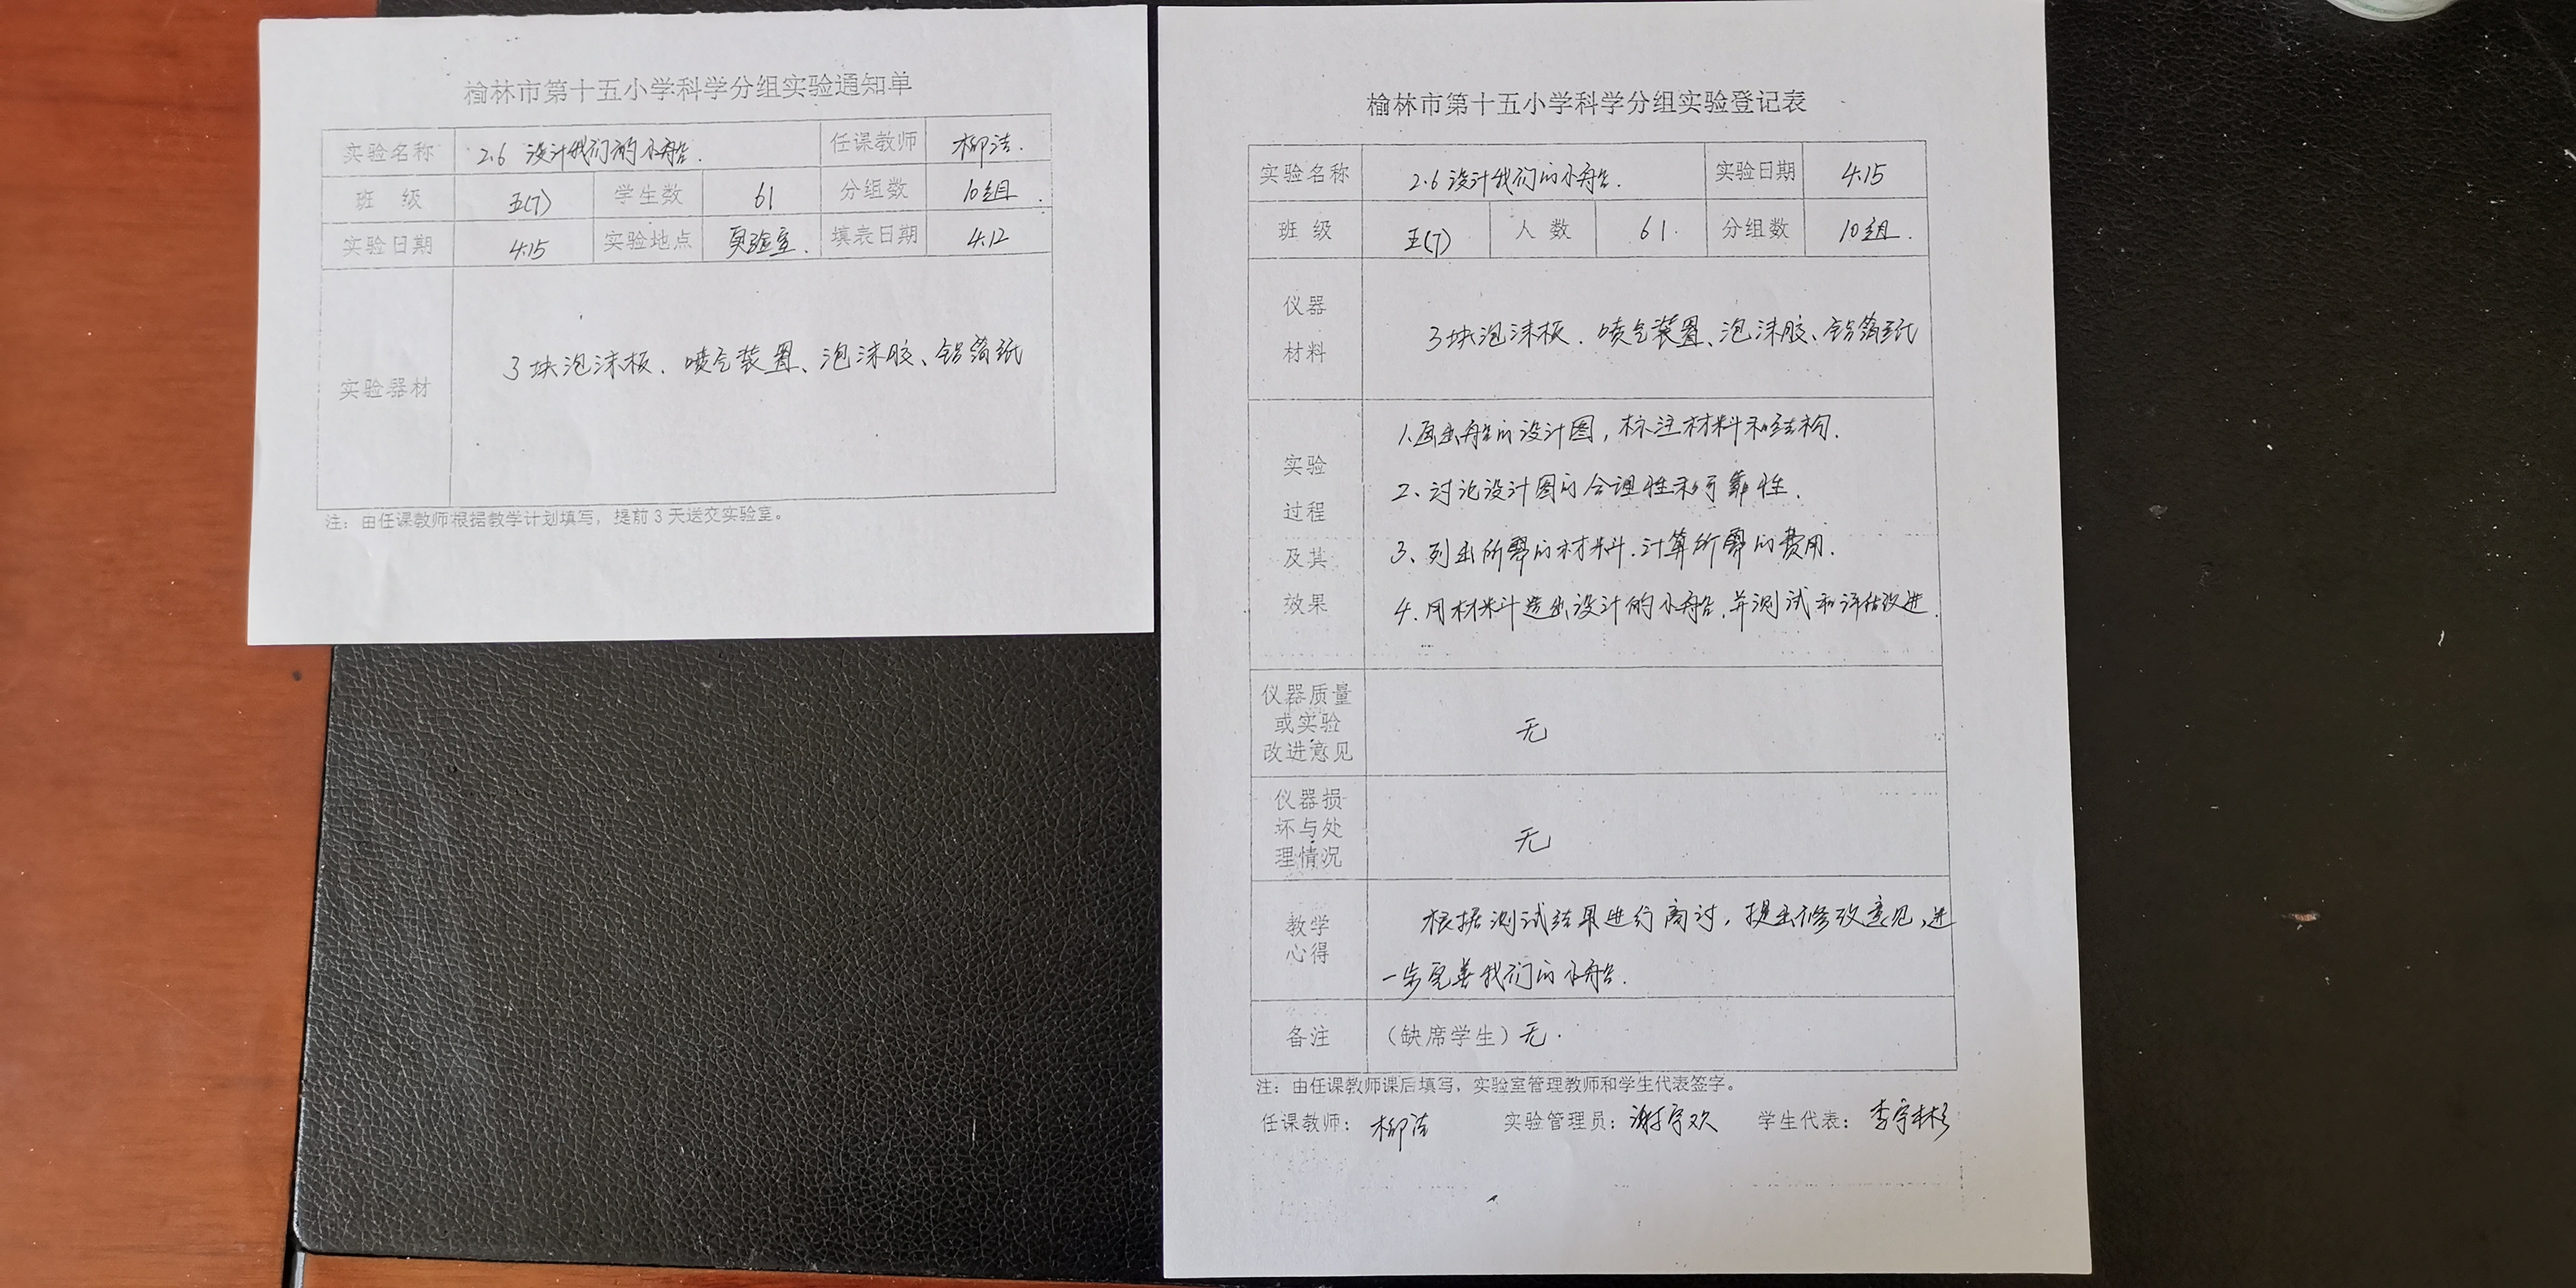 榆林市第十五小学科学分组实验通知单
实验名称 2.6 设计我们的小船. 任课教师 柳洁.
班 级 五(7) 学生数 61 分组数 10组.
实验日期 4.15 实验地点 实验室. 填表日期 4.12
实验器材 3块泡沫板、喷气装置、泡沫胶、铝箔纸
注：由任课教师根据教学计划填写，提前3天送交实验室。
榆林市第十五小学科学分组实验登记表
实验名称 2.6 设计我们的小船. 实验日期 4.15
班 级 五(7) 人 数 61. 分组数 10组.
仪器
材料
3块泡沫板、喷气装置、泡沫胶、铝箔纸
实验
过程
及其
效果
1.画出船的设计图，标注材料和结构.
2、讨论设计图的合理性和可靠性.
3、列出所需的材料.计算所需的费用.
4.用材料造出设计的小船.并测试和评估改进.
仪器质量
或实验
改进意见
无
仪器损
坏与处
理情况
无
教学
心得
根据测试结果进行商讨，提出修改意见，进
一步完善我们的小船.
备注 （缺席学生）无.
注：由任课教师课后填写，实验室管理教师和学生代表签字。
任课教师： 柳洁 实验管理员：谢宇欢 学生代表：李宇彬